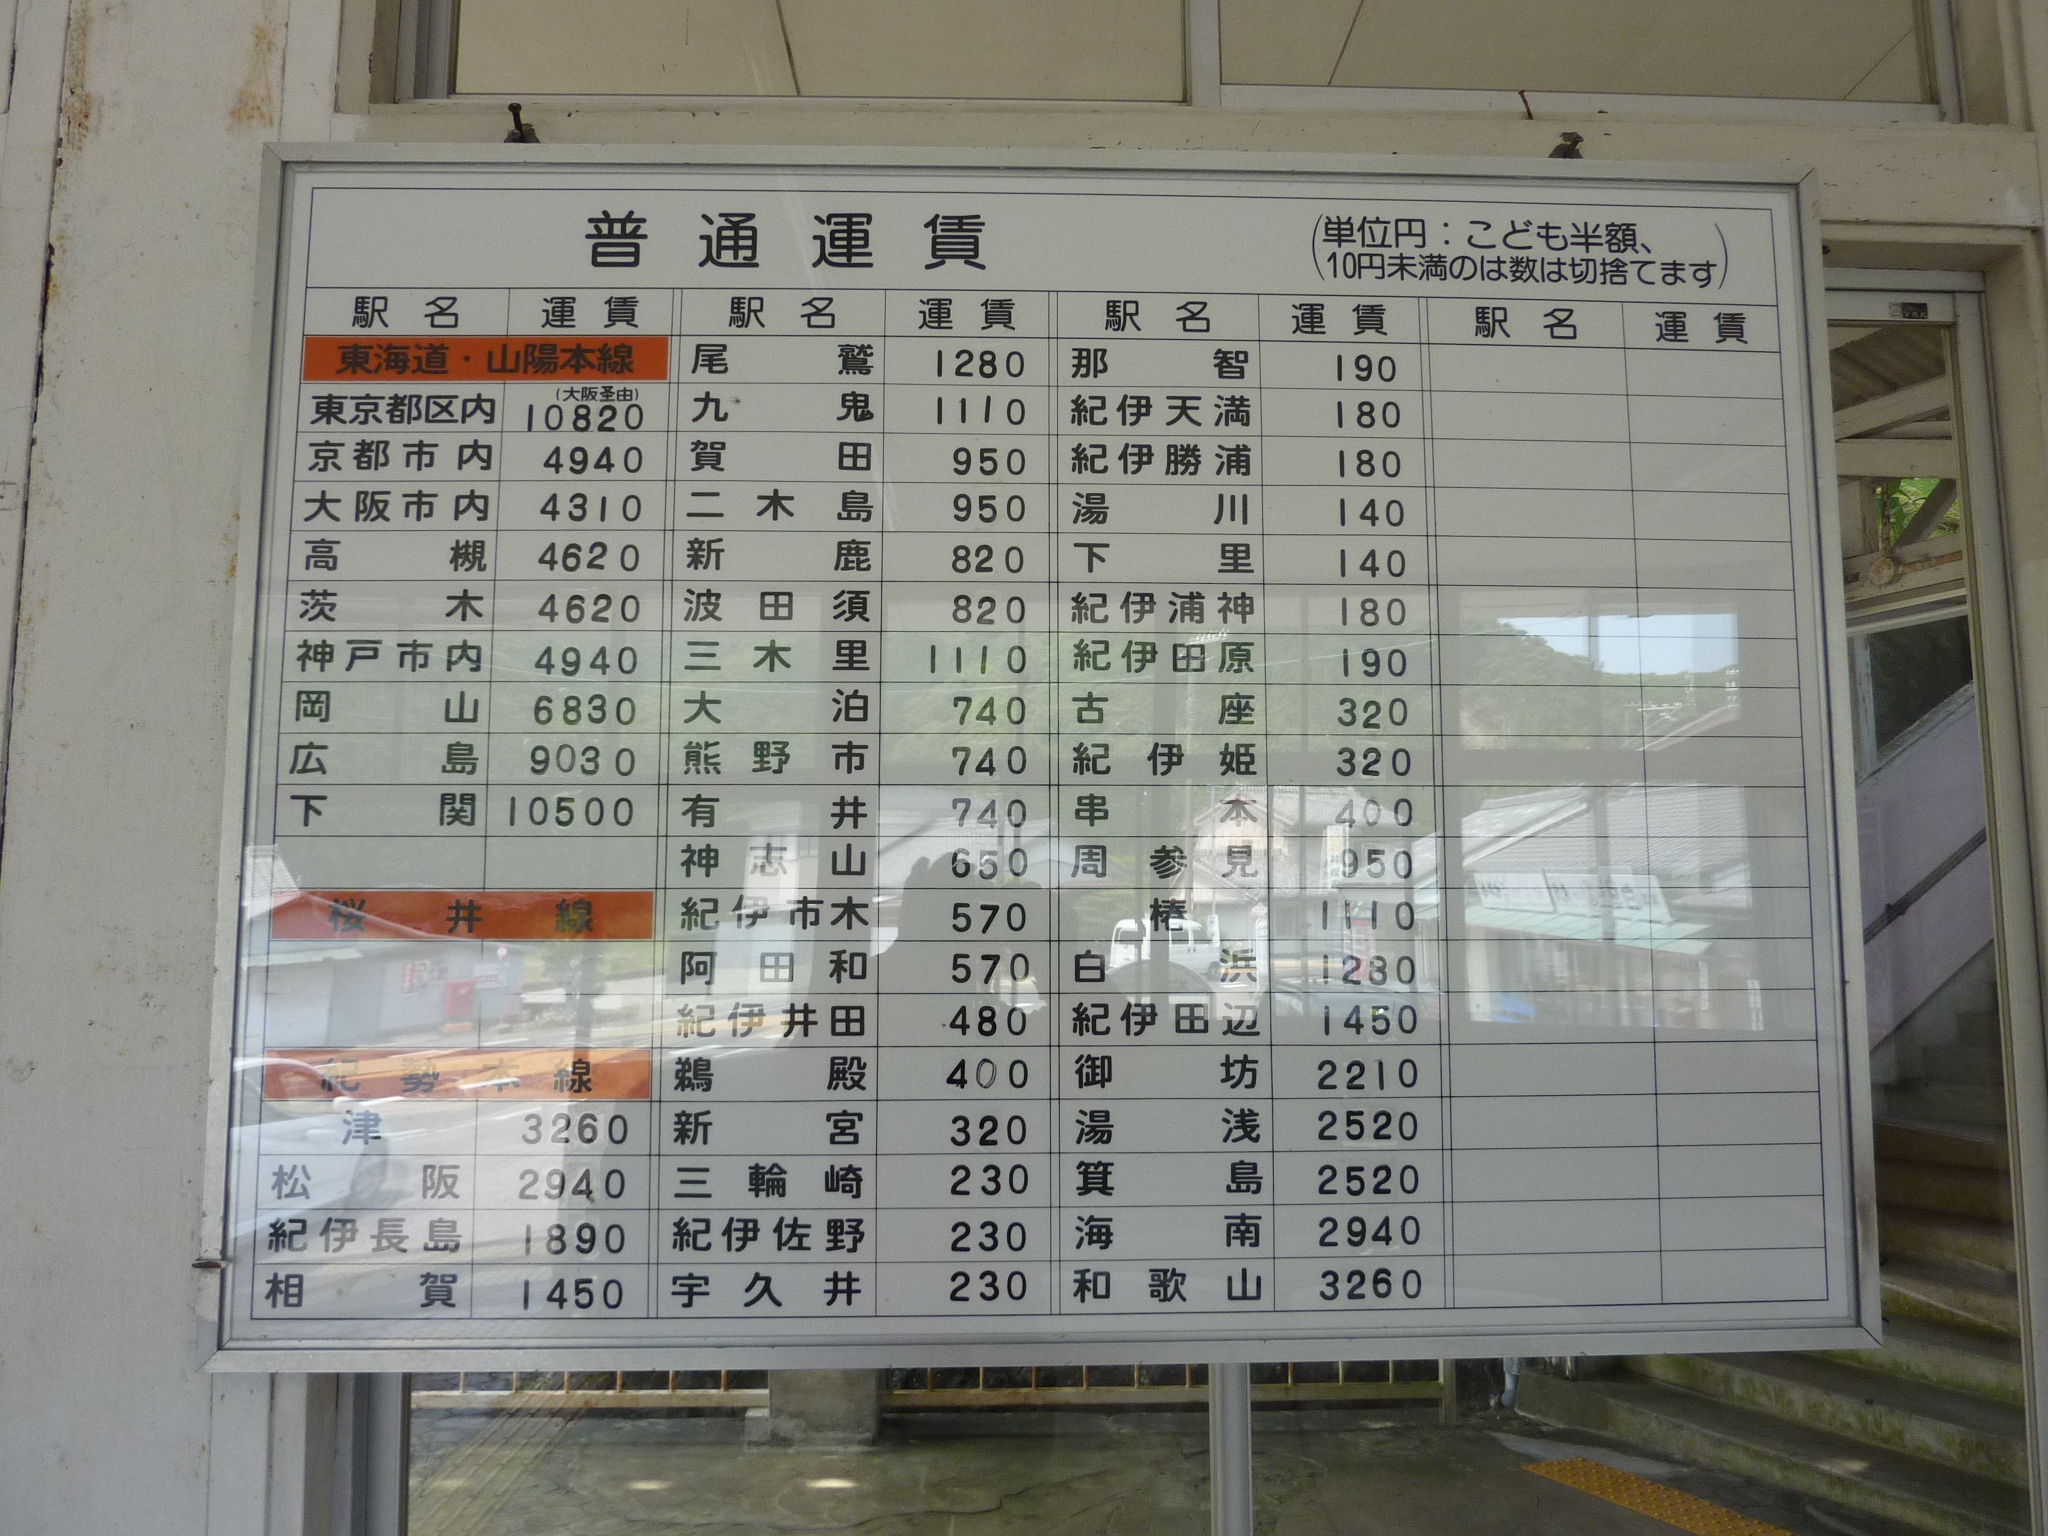 普通運賃
(単位円：こども半額、
10円未満のは数は切捨てます)
駅名 運賃 駅名 運賃 駅名 運賃 駅名 運賃
東海道・山陽本線 尾鷲 1280 那智 190
(大阪圣由)
東京都区内 10820 九鬼 1110 紀伊天満 180
京都市内 4940 賀田 950 紀伊勝浦 180
大阪市内 4310 二木島 950 湯川 140
高槻 4620 新鹿 820 下里 140
茨木 4620 波田須 820 紀伊浦神 180
神戸市内 4940 三木里 1110 紀伊田原 190
岡山 6830 大泊 740 古座 320
広島 9030 熊野市 740 紀伊姫 320
下関 10500 有井 740 串本 400
神志山 650 周参見 950
桜井線 紀伊市木 570 椿 1110
阿田和 570 白浜 1280
紀伊井田 480 紀伊田辺 1450
紀勢本線 鵜殿 400 御坊 2210
津 3260 新宮 320 湯浅 2520
松阪 2940 三輪崎 230 箕島 2520
紀伊長島 1890 紀伊佐野 230 海南 2940
相賀 1450 宇久井 230 和歌山 3260